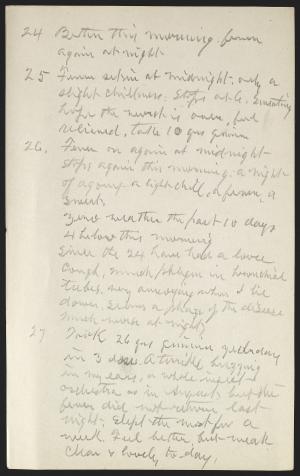 24 Better this morning. fever
again at night
25 Fever set in at midnight, only a
slight chilliness. Stops at 6. Sweating
hope the worst is over, feel
relieved, take 10 grs quinine
26. Fever on again at midnight
stops again this morning. a night
of agony - a light chill, a fever, a
sweat.
Zero weather the past 10 days
4 below this morning
Since the 24 have had a loose
cough, much phlegm in bronchial
tubes, very annoying when I lie
down. Seems a phase of the disease
much worse at night.
27 Took 26 grs quinine yesterday
in 3 doses. A terrible buzzing
in my ears, a whole insect
orchestra as in August, but the
fever did not return last
night. Slept the most for a
week. Feel better, but weak
Clear & lovely to-day.